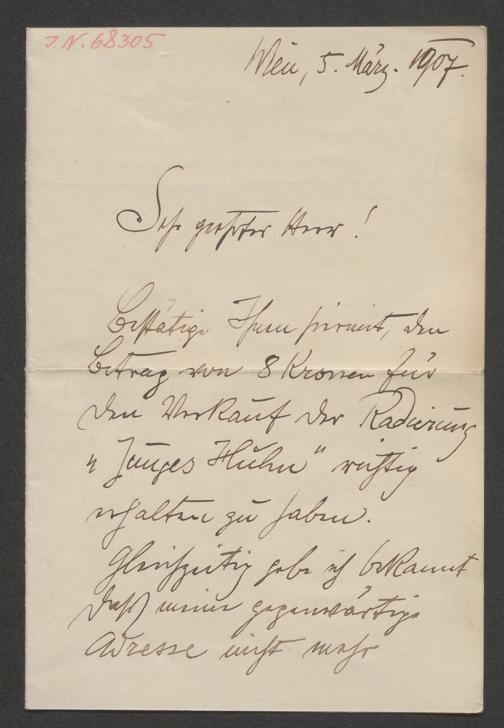 J.N. 68305
Wien, 5. März. 1907.
Sehr geehrter Herr!
Bestätige Ihnen hiermit, den
Betrag von 8 Kronen für
den Verkauf der Radierung
"Junges Huhn" richtig
erhalten zu haben.
Gleichzeitig gebe ich bekannt
daß meine gegenwärtige
Adresse nicht mehr